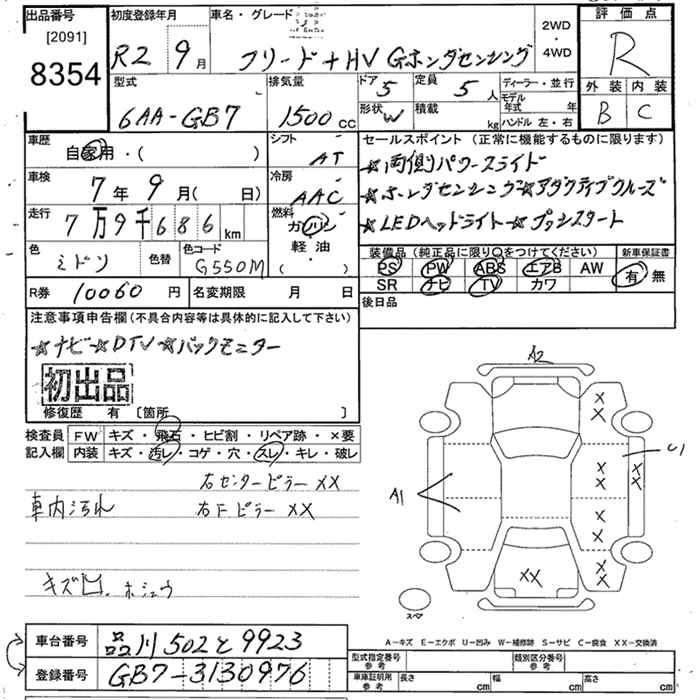 出品番号
[2091]
8354
初度登録年月
R2 9月
車名・グレード
フリード+HV Gホンダセンシング
2WD
・
4WD
評価点
R
外装 内装
B C
型式
6AA-GB7
排気量
1500 cc
ドア 5
定員 5 人
形状 W
積載 kg
ディーラー・並行
モデル年式 年
ハンドル 左・右
車歴
自家用・( )
シフト
AT
車検
7年 9月( 日)
冷房
AAC
走行
7万9千686km
燃料
ガソリン
軽油
( )
色
ミドリ
色替
色コード
G550M
セールスポイント(正常に機能するものに限ります)
☆両側パワースライド
☆ホンダセンシング☆アダプティブクルーズ
☆LEDヘッドライト☆プッシュスタート
装備品(純正品に限り○をつけてください)
新車保証書
PS PW ABS エアB AW
SR ナビ TV カワ
有 無
R券 10060円
名変期限 月 日
後日品
注意事項申告欄(不具合内容等は具体的に記入して下さい)
☆ナビ☆DTV☆バックモニター
初出品
修復歴 有 [箇所 ]
検査員
記入欄
FW キズ・飛石・ヒビ割・リペア跡・×要
内装 キズ・汚レ・コゲ・穴・スレ・キレ・破レ
右センターピラー XX
車内汚れ 右Fピラー XX
キズ凹.ホシュウ
A2
A1
U1
XX
スペア
A-キズ E-エクボ U-凹み W-補修跡 S-サビ C-腐食 XX-交換済
車台番号
品川502と9923
登録番号
GB7-3130976
型式指定番号 参考
類別区分番号 参考
車庫証明用 参考
長さ cm 幅 cm 高さ cm